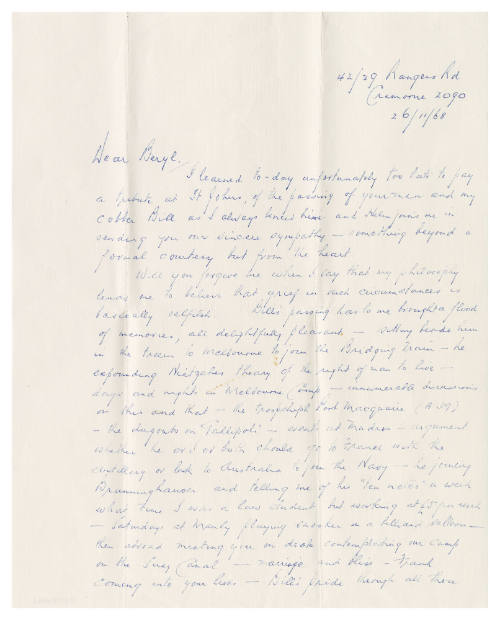 42/29 Rangers Rd
Cremorne 2090
26/11/68
Dear Beryl,
I learned to-day unfortunately too late to pay
a tribute at St Johns, of the passing of your man and my
cobber Bill as I always knew him and Helen joins me in
sending you our sincere sympathy — something beyond a
formal courtesy but from the heart
Will you forgive me when I say that my philosophy
leads me to believe that grief in such circumstances is
basically selfish. Bill's passing has to me brought a flood
of memories, all delightfully pleasant — sitting beside him
in the train to Melbourne to join the Bridging Train — he
expounding Nietzches theory of the right of man to live —
days and nights in Melbourne Camp — innumerable discussions
on this and that — the troopship Port Macquarie (A 39)
— the dugouts on "Gallipoli" — events at Mudros — argument
whether he or I or both should go to France with the
artillery or back to Australia to join the Navy — he joining
and telling me of his "ten notes" a week
what time I was a law student but working at £5 per week
— Saturdays at Manly playing snooker in a billiard saloon —
then abroad meeting you on deck contemplating our camp
on the Suez Canal — marriage and bliss — Frank
coming into your lives — Bill's pride through all these